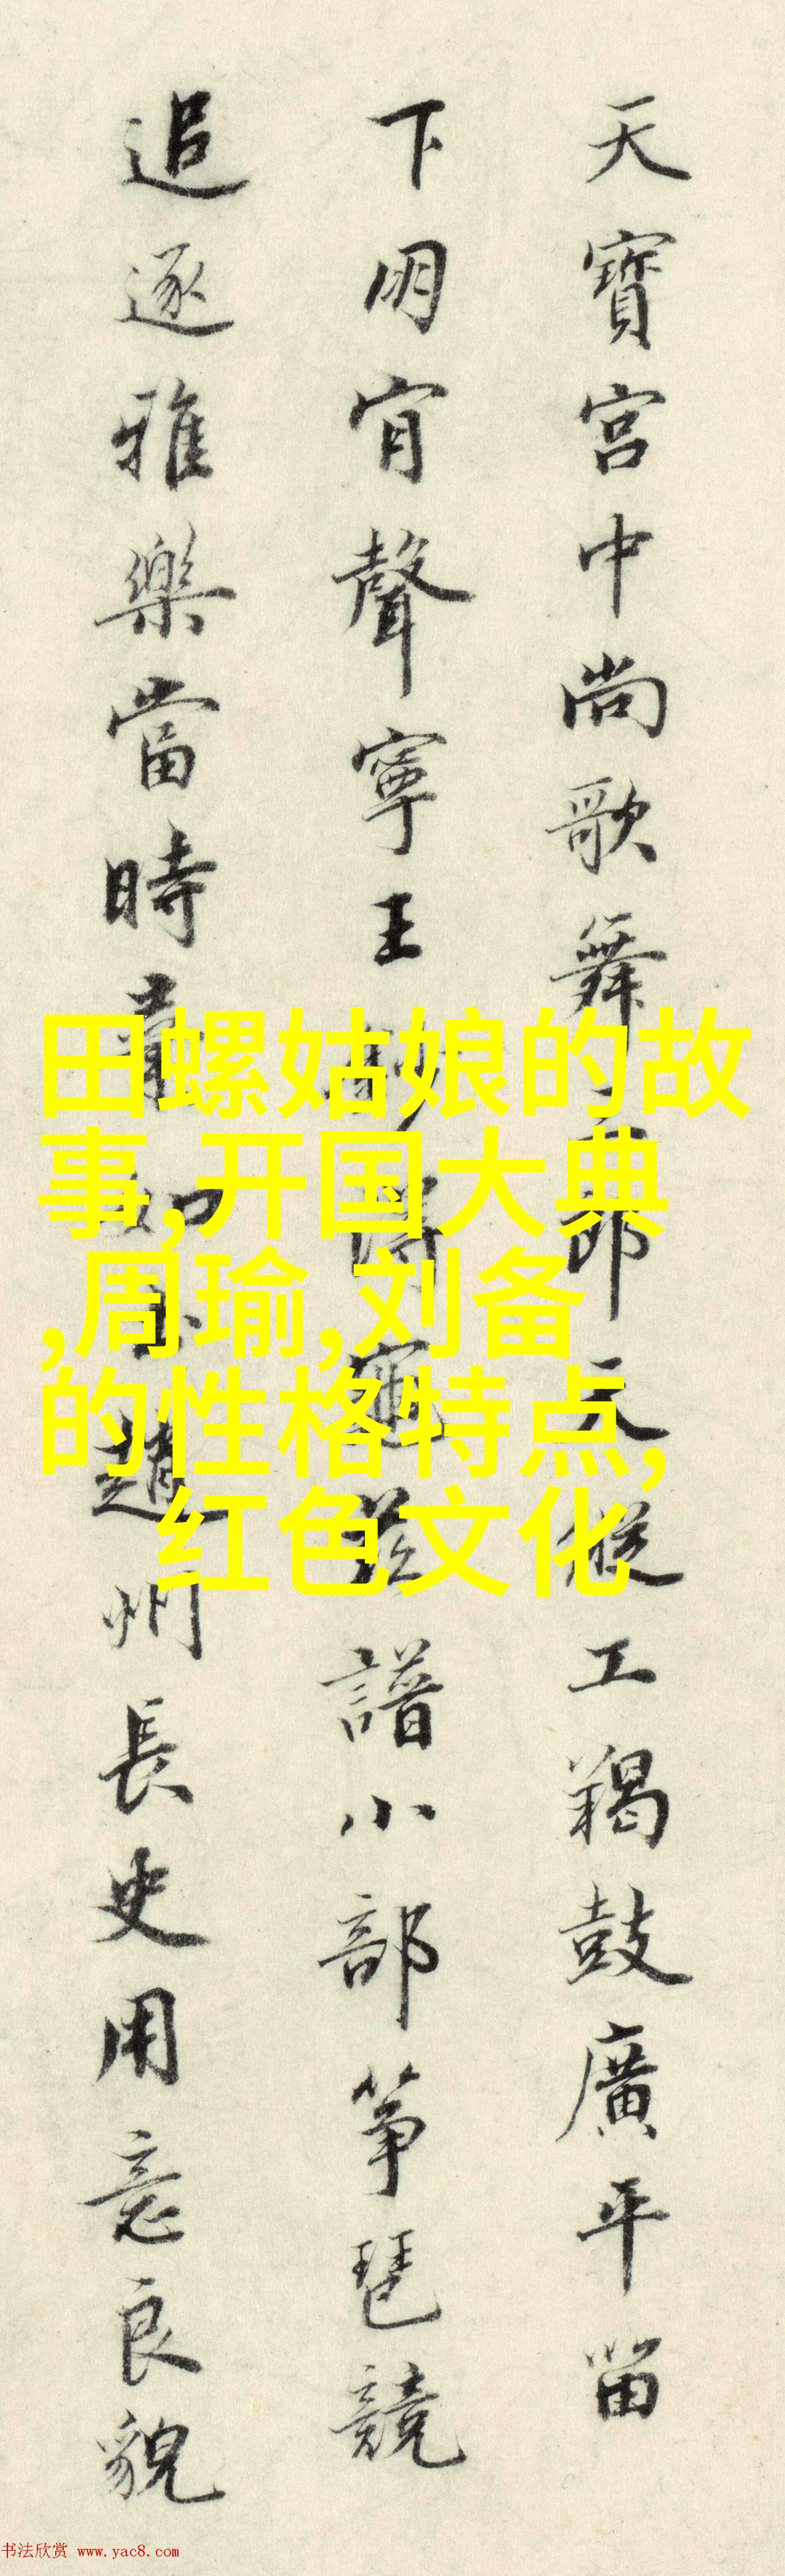 天寶宮中尚歌舞郎天縱工羯鼓廣平留
下朙宵聲寧王龜茲譜小部筝琶競
追逐雅樂當時趙州長史用意良貌
田螺姑娘的故
事,开国大典
,周瑜,刘备
的性格特点,
红色文化
书法欣赏 www.yac8.com